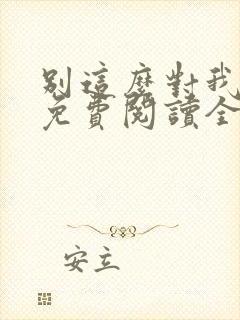 別這麼對我
免費閱讀全
安立